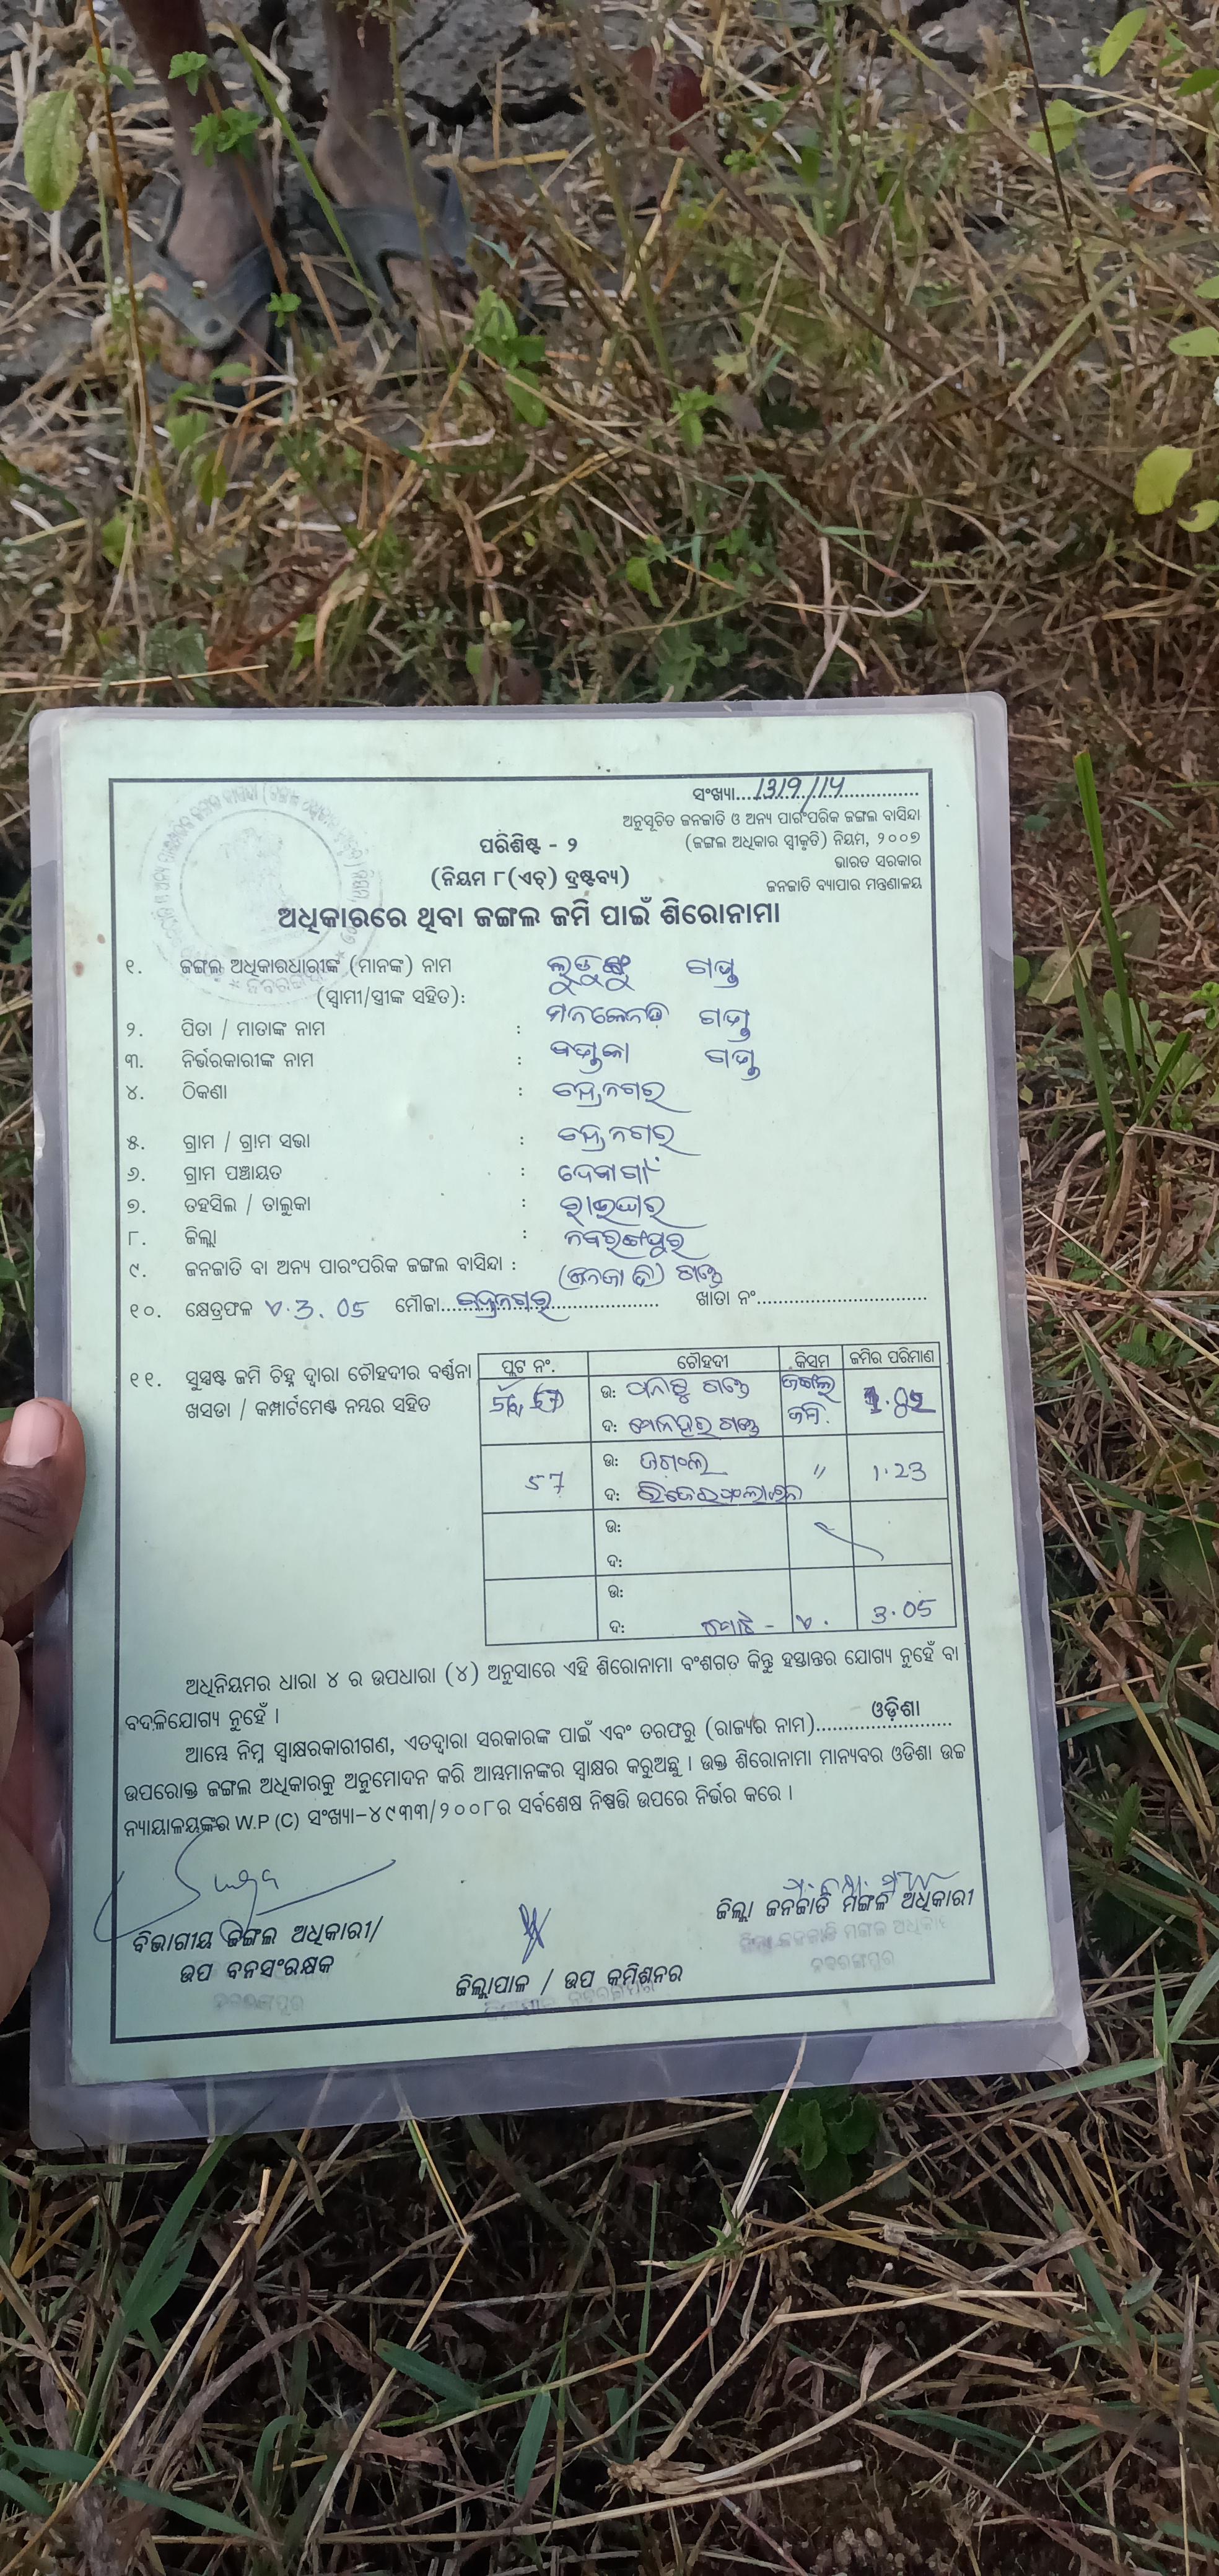 ସଂଖ୍ୟା...1319/14
ଅନୁସୂଚିତ ଜନଜାତି ଓ ଅନ୍ୟ ପାରଂପରିକ ଜଙ୍ଗଲ ବାସିନ୍ଦା
(ଜଙ୍ଗଲ ଅଧିକାର ସ୍ୱୀକୃତି) ନିୟମ, ୨୦୦୭
ଭାରତ ସରକାର
ଜନଜାତି ବ୍ୟାପାର ମନ୍ତ୍ରଣାଳୟ
ପରିଶିଷ୍ଟ - ୨
(ନିୟମ ୮(ଏଚ୍) ଦ୍ରଷ୍ଟବ୍ୟ)
ଅଧିକାରରେ ଥିବା ଜଙ୍ଗଲ ଜମି ପାଇଁ ଶିରୋନାମା
୧. ଜଙ୍ଗଲ ଅଧିକାରଧାରୀଙ୍କ (ମାନଙ୍କ) ନାମ ଗଣ୍ଡ
(ସ୍ୱାମୀ/ସ୍ତ୍ରୀଙ୍କ ସହିତ):
୨. ପିତା / ମାତାଙ୍କ ନାମ : ଗଣ୍ଡ
୩. ନିର୍ଭରକାରୀଙ୍କ ନାମ : ଗଣ୍ଡ
୪. ଠିକଣା :
୫. ଗ୍ରାମ / ଗ୍ରାମ ସଭା :
୬. ଗ୍ରାମ ପଞ୍ଚାୟତ : ଦେବାଗାଁ
୭. ତହସିଲ / ତାଲୁକା : ରାଇଘର
୮. ଜିଲ୍ଲା : ନବରଙ୍ଗପୁର
୯. ଜନଜାତି ବା ଅନ୍ୟ ପାରଂପରିକ ଜଙ୍ଗଲ ବାସିନ୍ଦା : (ଜନଜାତି) ଗଣ୍ଡ
୧୦. କ୍ଷେତ୍ରଫଳ 3.05 ମୌଜା... ଖାତା ନଂ...
୧୧. ସୁସ୍ପଷ୍ଟ ଜମି ଚିହ୍ନ ଦ୍ୱାରା ଚୌହଦୀର ବର୍ଣ୍ଣନା
ଖସଡା / କମ୍ପାର୍ଟମେଣ୍ଟ ନମ୍ବର ସହିତ
ପ୍ଲଟ ନଂ. ଚୌହଦୀ କିସମ ଜମିର ପରିମାଣ
ଉ: ଗଣ୍ଡ ଜଙ୍ଗଲ
ଦ: ମୋନହର ଗଣ୍ଡ ଜମି.
57 ଉ: ଜଙ୍ଗଲ " 1.23
ଦ:
ଉ:
ଦ:
ଉ:
ଦ: ମୋଟ - 3.05
ଅଧିନିୟମର ଧାରା ୪ ର ଉପଧାରା (୪) ଅନୁସାରେ ଏହି ଶିରୋନାମା ବଂଶଗତ କିନ୍ତୁ ହସ୍ତାନ୍ତର ଯୋଗ୍ୟ ନୁହେଁ ବା
ବଦଳିଯୋଗ୍ୟ ନୁହେଁ ।
ଆମ୍ଭେ ନିମ୍ନ ସ୍ୱାକ୍ଷରକାରୀଗଣ, ଏତଦ୍ୱାରା ସରକାରଙ୍କ ପାଇଁ ଏବଂ ତରଫରୁ (ରାଜ୍ୟର ନାମ)...ଓଡ଼ିଶା...
ଉପରୋକ୍ତ ଜଙ୍ଗଲ ଅଧିକାରକୁ ଅନୁମୋଦନ କରି ଆମ୍ଭମାନଙ୍କର ସ୍ୱାକ୍ଷର କରୁଅଛୁ । ଉକ୍ତ ଶିରୋନାମା ମାନ୍ୟବର ଓଡିଶା ଉଚ୍ଚ
ନ୍ୟାୟାଳୟଙ୍କର W.P (C) ସଂଖ୍ୟା-୪୯୩୩/୨୦୦୮ର ସର୍ବଶେଷ ନିଷ୍ପତ୍ତି ଉପରେ ନିର୍ଭର କରେ ।
ବିଭାଗୀୟ ଜଙ୍ଗଲ ଅଧିକାରୀ/
ଉପ ବନସଂରକ୍ଷକ
ଜିଲ୍ଲାପାଳ / ଉପ କମିଶନର
ଜିଲ୍ଲା ଜନଜାତି ମଙ୍ଗଳ ଅଧିକାରୀ
ଜିଲ୍ଲା ଜନଜାତି ମଙ୍ଗଳ ଅଧିକାରୀ
ନବରଙ୍ଗପୁର
ନବରଙ୍ଗପୁର